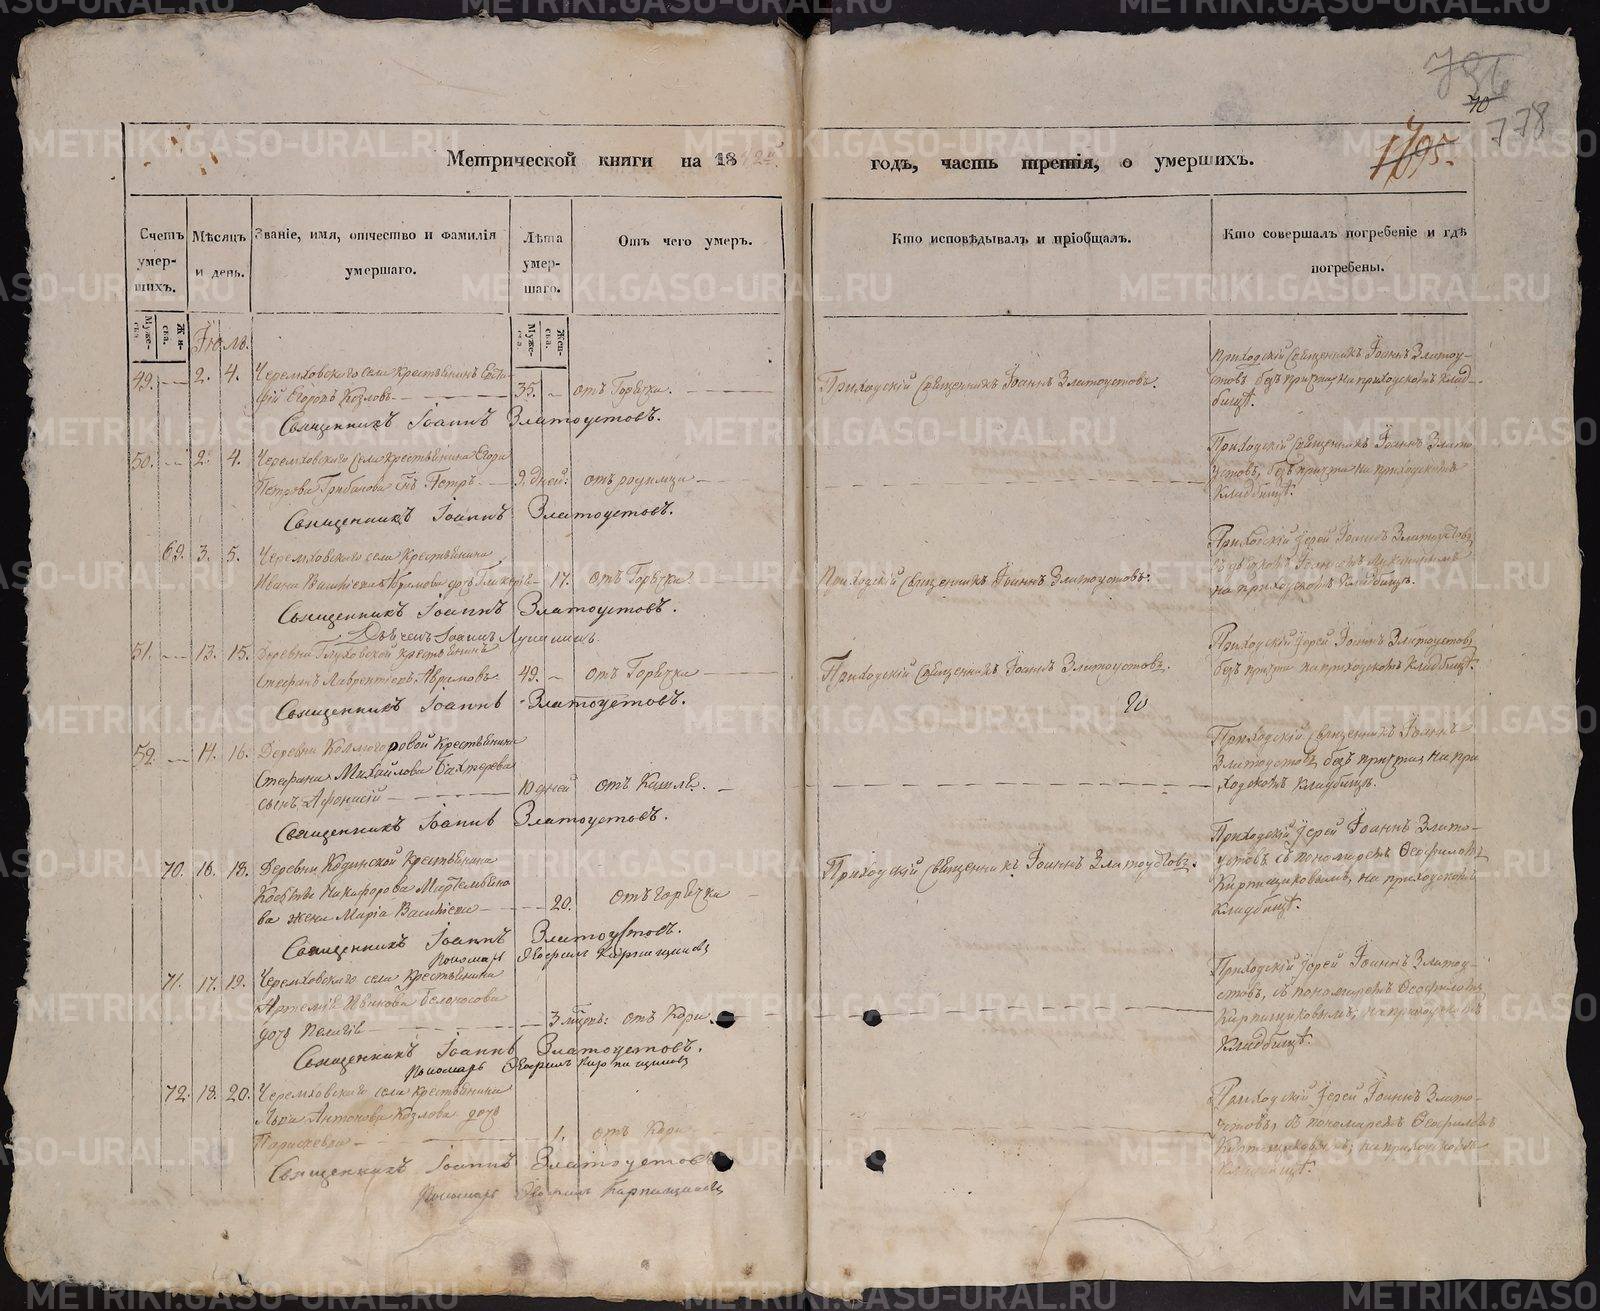 778
Метрической книги на 18
годъ, часть третія, о умершихъ.
1795.
Счетъ умер-
шихъ.
Мѣсяцъ
и день.
Званіе, имя, отчество и фамилія
умершаго.
Лѣта
умер-
шаго.
Отъ чего умеръ.
Кто исповѣдывалъ и пріобщалъ.
Кто совершалъ погребеніе и гдѣ
погребены.
Муже-
ска.
Жен-
ска.
Муже-
ска.
Жен-
ска.
49. 2. 4. Черемховского села крестьянинъ
Егоровъ Козловъ 35. отъ Горячки.
Приходскій Священникъ Іоаннъ Златоустовъ.
Приходскій Священникъ Іоаннъ Златоу-
стовъ безъ причта на приходскомъ клад-
бищѣ.
Священникъ Іоаннъ Златоустовъ.
50. 2. 4. Черемховского села крестьянина Егора
Петрова сынъ Петръ 9 дней: отъ родимца
Приходскій Священникъ Іоаннъ Злато-
устовъ, безъ причта на приходскомъ
кладбищѣ.
Священникъ Іоаннъ Златоустовъ.
69. 3. 5. Черемховского села Крестьянина
Ивана 17. отъ Горячки
Приходскій Священникъ Іоаннъ Златоустовъ.
Приходскій Іерей Іоаннъ Златоустовъ
на приходскомъ Кладбищѣ.
Священникъ Іоаннъ Златоустовъ.
51. 13. 15. Деревни Глуховской крестьянинъ
Стефанъ Лаврентіевъ Аврамовъ 49. отъ Горячки
Приходскій Священникъ Іоаннъ Златоустовъ.
Приходскій Іерей Іоаннъ Златоустовъ
безъ причта на приходскомъ Кладбищѣ.
Священникъ Іоаннъ Златоустовъ.
52. 14. 16. Деревни Колмогоровой крестьянина
Стефана Михайлова Бахтерева
сынъ Афонасій 10 дней отъ Кашля.
Приходскій священникъ Іоаннъ
Златоустовъ безъ причта, на при-
ходскомъ кладбищѣ.
Священникъ Іоаннъ Златоустовъ.
70. 16. 18. Деревни Кодинской Крестьянина
Никифорова Мартемьяно-
ва жена Марія Васильева 20. отъ горячки
Приходскій Священникъ Іоаннъ Златоустовъ.
Приходскій Іерей Іоаннъ Злато-
устовъ съ пономаремъ Феофиломъ
Кирпищиковымъ, на приходскомъ
кладбищѣ.
Священникъ Іоаннъ Златоустовъ.
Пономарь Феофилъ Кирпищиковъ
71. 17. 19. Черемховского села крестьянина
Артемія Иванова Белоносова
дочь Пелагія 3 отъ Кори.
Приходскій Іерей Іоаннъ Златоу-
стовъ, съ пономаремъ Феофиломъ
Кирпищиковымъ, на приходскомъ
Кладбищѣ.
Священникъ Іоаннъ Златоустовъ.
Пономарь Феофилъ Кирпищиковъ
72. 18. 20. Черемховского села крестьянина
Льва Антонова Козлова дочь
Параскевія 1. отъ Кори
Приходскій Іерей Іоаннъ Злато-
устовъ, съ пономаремъ Феофиломъ
Кирпищиковымъ, на приходскомъ
кладбищѣ.
Священникъ Іоаннъ Златоустовъ
Пономарь Феофилъ Кирпищиковъ
METRIKI.GASO-URAL.RU